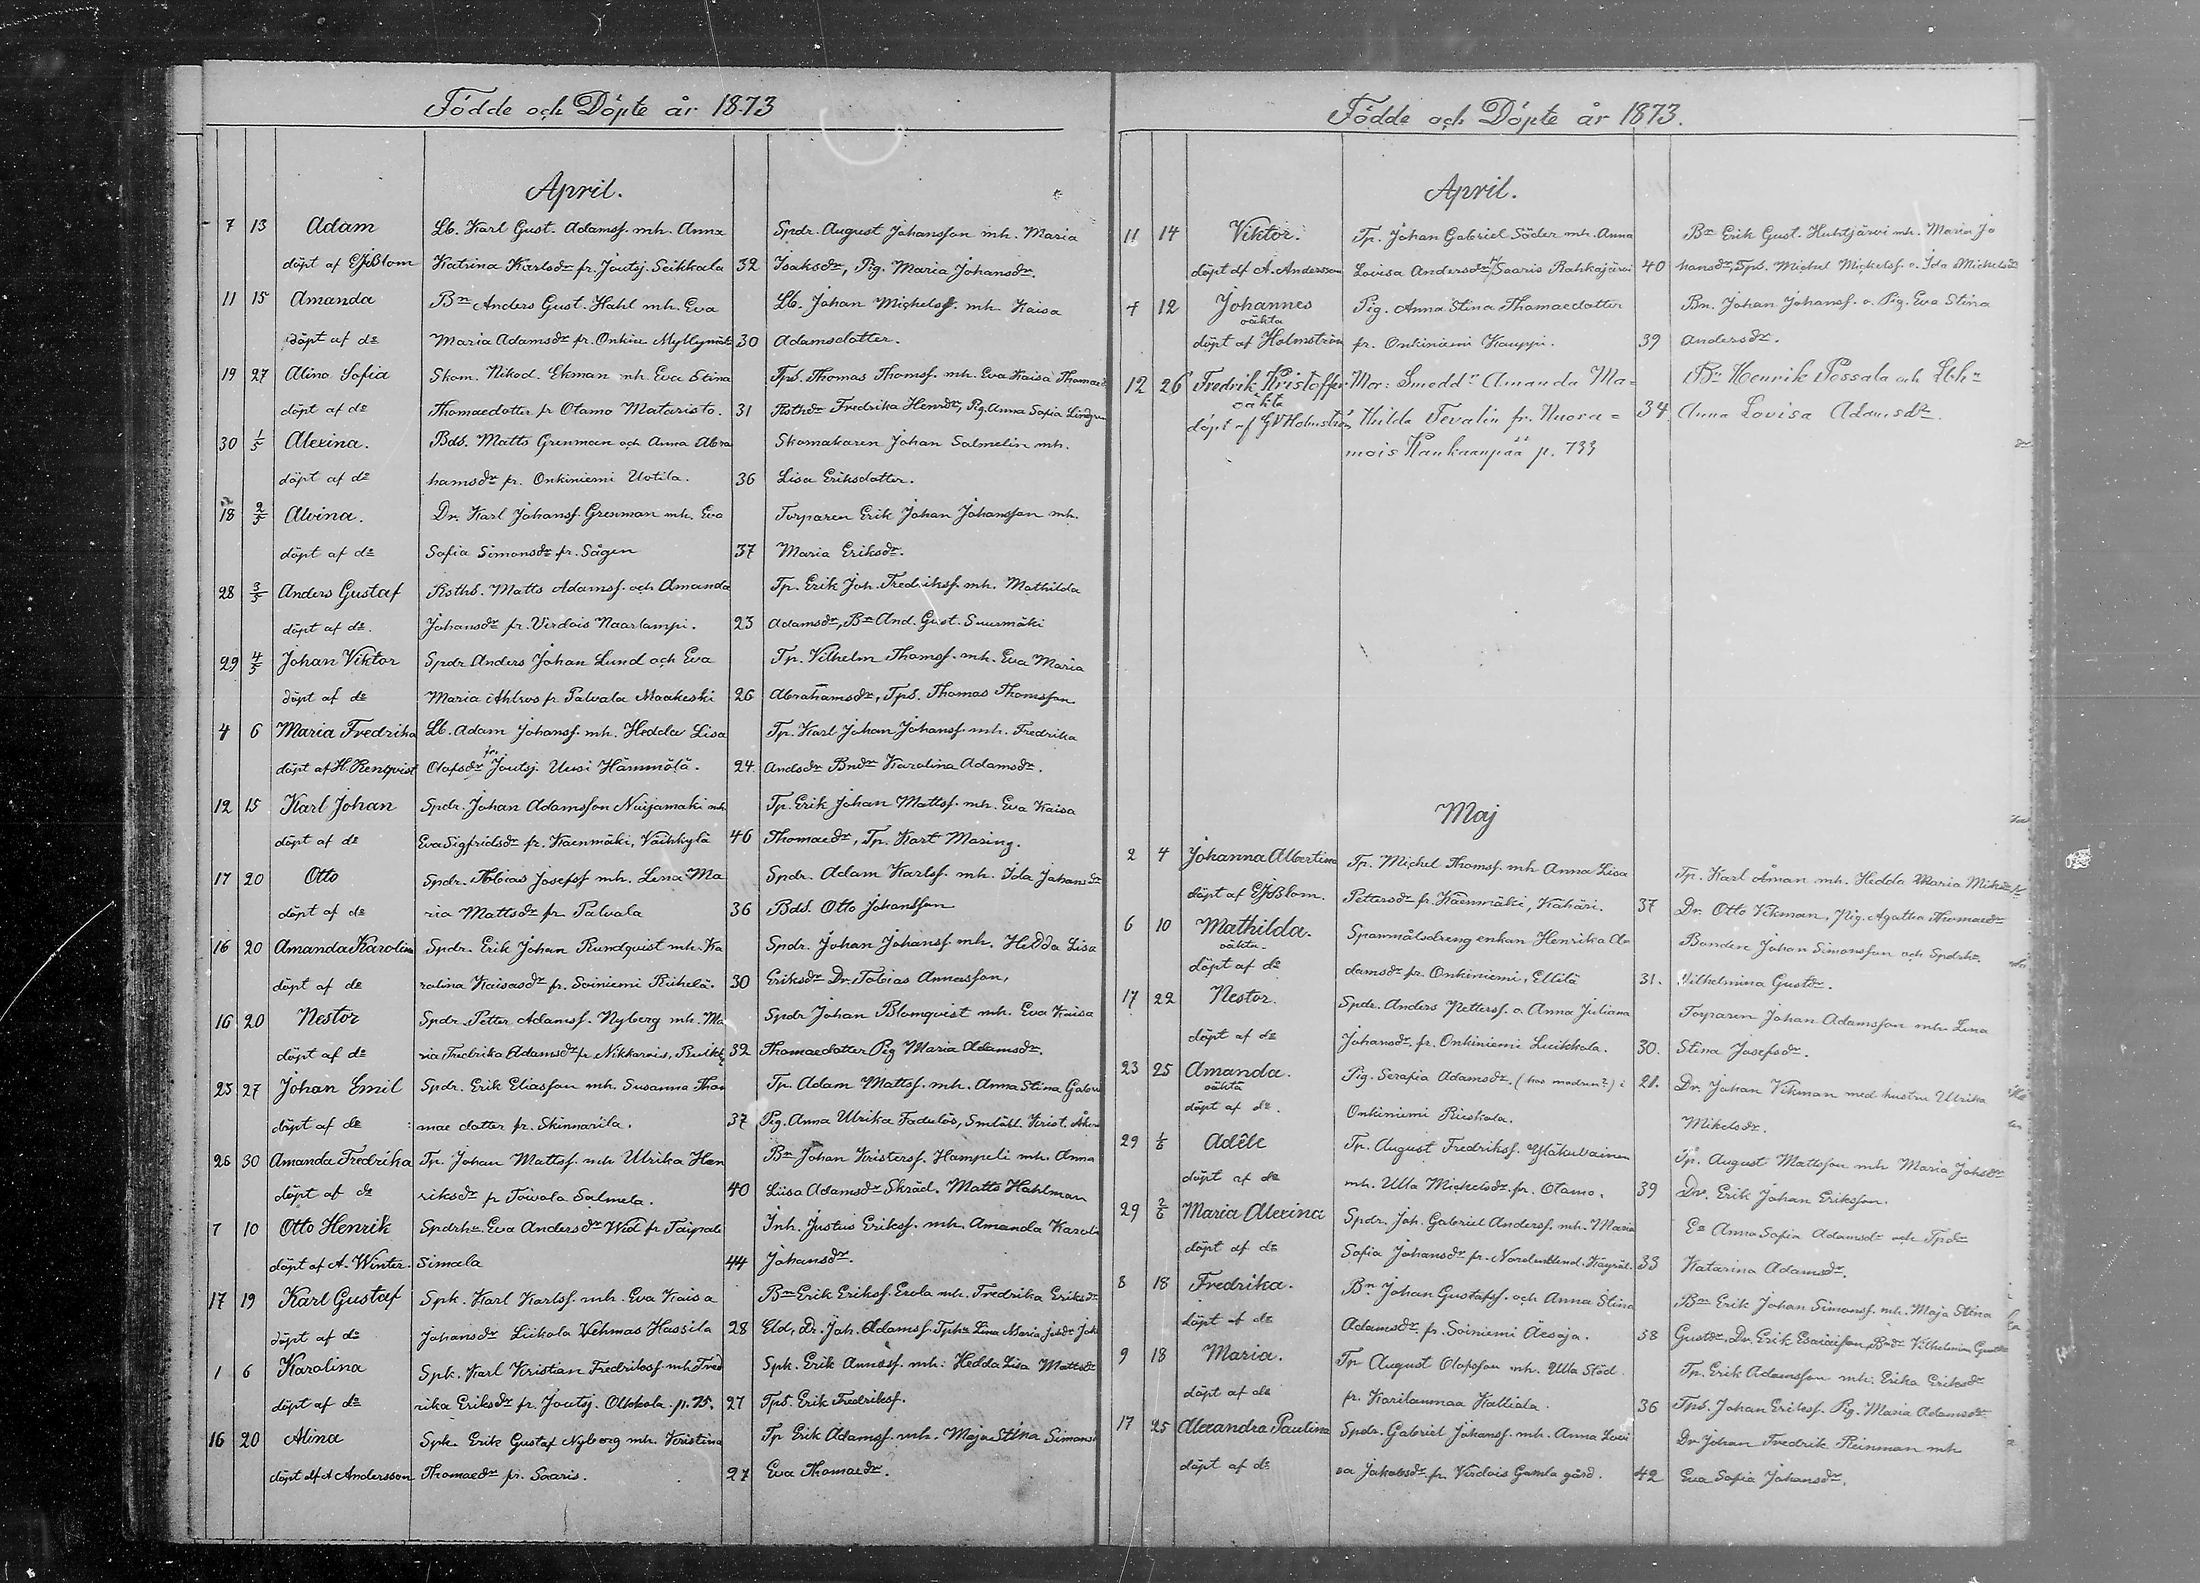 Födde och Döpte år 1873
April.
7 13 Adam Lb. Karl Gust. Adamss. mh. Anna Spdr. August Johansson mh. Maria
döpt af Katrina Karlsdr fr. Joutsj. Seikkala 32 Isaksdr, Pig. Maria Johansdr.
11 15 Amanda Bn Anders Gust. Hahl mh. Eva Lb. Johan Michelss. mh. Kaisa
döpt af do Maria Adamsdr fr. Onkin 30 Adamsdotter.
19 27 Alina Sofia Skom. Nikod. Ekman mh. Eva Stina Tps. Thomas Thomss. mh. Eva Kaisa
döpt af do Thomaedotter fr Otamo Mataristo. 31 Fredrika Henrdr, Pig. Anna Sofia Lindgren
30 1/5 Alexina. Bds. Matts Grenman och Anna Abra Skomakaren Johan Salmelin mh.
döpt af do hamsdr fr. Onkiniemi Uotila. 36 Lisa Eriksdotter.
18 2/5 Alvina. Dr. Karl Johanss. Grenman mh. Eva Torparen Erik Johan Johansson mh.
döpt af do Sofia Simonsdr fr. Sågen 37 Maria Eriksdr.
28 3/5 Anders Gustaf Rsths. Matts Adamss. och Amanda Tp. Erik Joh. Fredrikss. mh. Mathilda
döpt af do. Johansdr fr. Virdois Naarlampi. 23 Adamsdr, Bn And. Gust. Suurmäki
29 4/5 Johan Viktor Spdr Anders Johan Lund och Eva Tp. Vilhelm Thomss. mh. Eva Maria
döpt af do Maria Ahlros fr Palvala Maakeski 26 Abrahamsdr, Tps. Thomas Thomsson
4 6 Maria Fredrika Lb. Adam Johanss. mh. Hedda Lisa Tp. Karl Johan Johanss. mh. Fredrika
döpt af H. Renqvist Olofsdr fr Joutsj. Uusi Hämmölä. 24. Andsdr Bndr Karolina Adamsdr.
12 15 Karl Johan Spdr. Johan Adamsson Nuijamäki mh Tp. Erik Johan Mattss. mh. Eva Kaisa
döpt af do Eva Sigfridsdr fr. Kaenmäki, Vaihkylä 46 Thomaedr, Tp. Karl Masing.
17 20 Otto Spdr. Tobias Josefss mh. Lena Ma Spdr. Adam Karlss. mh. Ida Johansdr
döpt af do ria Mattsdr fr Palvala 36 Bds. Otto Johansson
16 20 Amanda Karolina Spdr. Erik Johan Rundqvist mh. Ka Spdr. Johan Johanss. mh. Hedda Lisa
döpt af do rolina Kaisasdr fr. Soiniemi Riihelä. 30 Eriksdr Dr. Tobias Annasson,
16 20 Nestor Spdr. Petter Adamss. Nyberg mh. Ma Spdr Johan Blomqvist mh. Eva Kaisa
döpt af do ria Fredrika Adamsdr fr. Nikkarois, 32 Thomaedotter Pig Maria Adamsdr.
23 27 Johan Emil Spdr. Erik Eliasson mh. Susanna Thom Tp. Adam Mattss. mh. Anna Stina
döpt af do mae dotter fr. Skinnarila. 37 Pig. Anna Ulrika
26 30 Amanda Fredrika Tp. Johan Mattss. mh Ulrika Hen Bn Johan Kristerss. Hampeli mh. Anna
döpt af do riksdr fr Toivola Salmela. 40 Liisa Adamsdr Skräd. Matts Hahlman
7 10 Otto Henrik Spdrhu Eva Andersdr Wid fr Taipale Inh. Justus Erikss. mh. Amanda
döpt af A. Winter. Simala 44 Johansdr.
17 19 Karl Gustaf Spk. Karl Karlss. mh. Eva Kaisa Bn Erik Erikss. Erola mh. Fredrika Eriksdr
döpt af do Johansdr Liikola Vehmas Hassila 28 Eld, Dr. Joh. Adamss. Lina Maria
1 6 Karolina Spk. Karl Kristian Fredrikss mh. Fred Spk. Erik Annass. mh. Hedda Lisa Mattsdr
döpt af do rika Eriksdr fr. Joutsj. Ollkola p. 25. 27 Tps. Erik Fredrikss.
16 20 Alina Spk. Erik Gustaf Nyborg mh. Kristina Tp Erik Adamss. mh. Maja Stina Simons
döpt af A Andersson Thomaedr fr. Saaris. 27 Eva Thomaedr.
Födde och Döpte år 1873.
April.
11 14 Viktor. Tp. Johan Gabriel Söder mh. Anna Bn Erik Gust. Huhtjärvi mh. Maria Jo
döpt af A. Andersson Lovisa Andersdr fr Saaris Rahkajärvi 40 hansdr, Tps. Michel Mickelss. o. Ida Mickelsdr
7 12 Johannes Pig. Anna Stina Thomaedotter Bn. Johan Johanss. o. Pig. Eva Stina
oäkta
döpt af Holmström fr. Onkiniemi Kauppi. 39 Andersdr.
12 26 Fredrik Kristoffer Mor: Smeddr Amanda Ma= Bn Henrik Possala och
oäkta
döpt af GVHolmström Hilda Tevalin fr. Nuora= 34 Anna Lovisa Adamsdr
mois Kankaanpää p. 733
Maj
2 4 Johanna Albertina Tp. Michel Thomss. mh Anna Lisa Tp. Karl Åman mh. Hedda Maria
döpt af Pettersdr fr. Kaenmäki, Kahäri. 37 Dr. Otto Vikman, Pig. Agatha Thomaedr
6 10 Mathilda. Spanmålsdreng enkan Henrika A Bonden Johan Simonsson och Spdrhu.
oäkta.
döpt af do damsdr fr. Onkiniemi, Ellilä 31. Vilhelmina Gustdr.
17 22 Nestor. Spdr. Anders Petterss. o. Anna Juliana Torparen Johan Adamsson mh. Lena
döpt af do Johansdr. fr. Onkiniemi Luikkola. 30. Stina Josefsdr.
23 25 Amanda. Pig. Serafia Adamsdr. (hos modren?) i 21. Dr. Johan Vikman med hustru Ulrika
oäkta
döpt af do. Onkiniemi Ruskola. Mikelsdr.
29 1/6 Adéle Tp. August Fredrikss. mh Tp. August Mattsson mh Maria Johsdr
döpt af do mh. Ulla Mickelsdr. fr. Otamo. 39 Dr. Erik Johan Eriksson.
29 2/6 Maria Alexina Spdr. Joh. Gabriel Anderss. mh. Maria Anna Sofia Adamsdr och Tpdr
döpt af do Sofia Johansdr fr. 33 Katarina Adamsdr.
8 18 Fredrika. Bn Johan Gustafss. och Anna Stina Bn Erik Johan Simonss. mh. Maja Stina
döpt af do Adamsdr. fr. Soiniemi Äesoja. 38 Gustdr. Dr. Erik Esaiasson, Bndr Vilhelmina
9 18 Maria. Tp August Olofsson mh. Ulla Stöd Tp. Erik Adamsson mh. Erika Eriksdr
döpt af do fr. Karilanmaa Kalliala. 36 Tps. Johan Erikss. Pig. Maria Adamsdr.
17 25 Alexandra Paulina Spdr. Gabriel Johanss. mh. Anna Lovi Dr Johan Fredrik Reinman mh
döpt af do sa Jakobsdr fr Virdois Gamla gård. 42 Eva Sofia Johansdr.